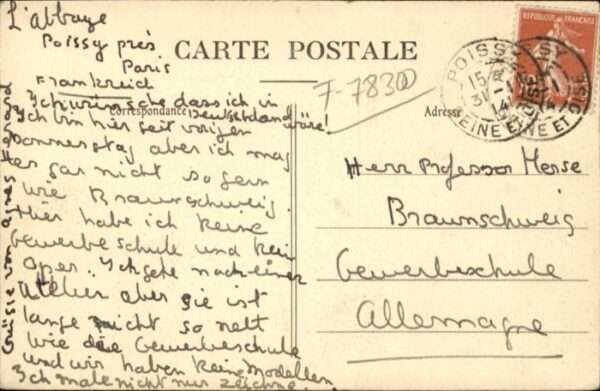 L'abbaye
Poissy près
Paris
Frankreich
CARTE POSTALE
Correspondance
Adresse
REPUBLIQUE FRANÇAISE
POISSY
15
31
14
SEINE ET OISE
F-78300
Ich wünsche dass ich in
Deutschland wäre!
Ich bin hier seit vorigen
Donnerstag aber ich mag
es gar nicht so gern
wie Braunschweig.
Hier habe ich keine
Gewerbeschule und kein
Oper. Ich gehe nach einer
Atelier aber sie ist
lange nicht so nett
wie die Gewerbeschule
und wir haben keine Modellen
Ich male nicht nur zeichne.
Grüsse von Agnes
Herr Professor Herse
Braunschweig
Gewerbeschule
Allemagne